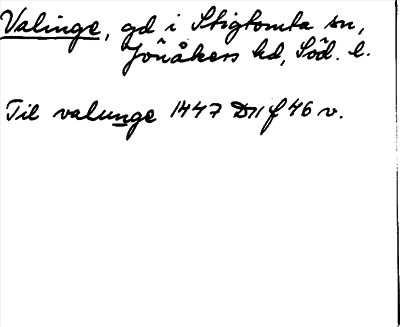 Valinge, gd i Stigtomta sn,
Jönåkers hd, Söd. l.
Til valunge 1447 D11 f 46 v.